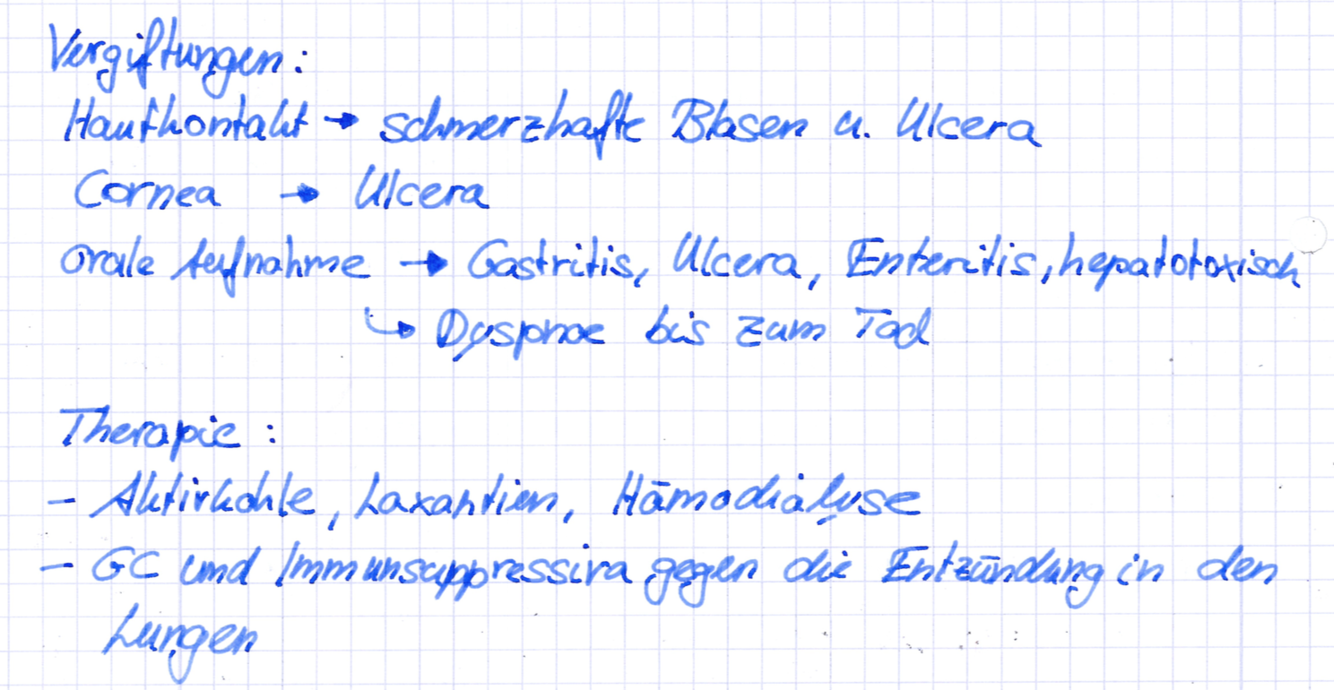 Vergiftungen:
Hautkontakt → schmerzhafte Blasen u. Ulcera
Cornea → Ulcera
orale Aufnahme → Gastritis, Ulcera, Enteritis, hepatotoxisch
↳ Dyspnoe bis zum Tod
Therapie:
- Aktivkohle, Laxantien, Hämodialyse
- GC und Immunsuppressiva gegen die Entzündung in den
Lungen